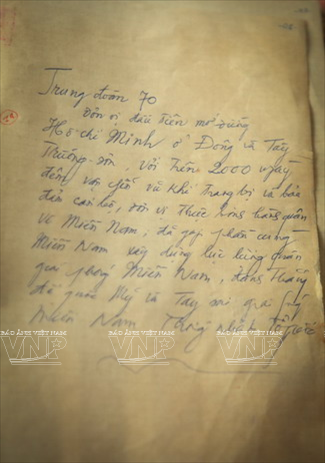 Trung đoàn 70
Đơn vị đầu tiên mở đường
Hồ Chí Minh ở Đông và Tây
Trường Sơn, với trên 2000 ngày
đêm vận chuyển vũ khí trang bị và bảo
đảm cán bộ, đơn vị thực hàng quân
về Miền Nam, đã góp phần cùng
Miền Nam xây dựng lực lượng quân
giải phóng Miền Nam, đánh thắng
đế quốc Mỹ và Tay sai giải phóng
Miền Nam Thống nhất Tổ quốc
BÁO ẢNH VIỆT NAM
VNP
BÁO ẢNH VIỆT NAM
VNP
BÁO ẢNH VIỆT NAM
VNP